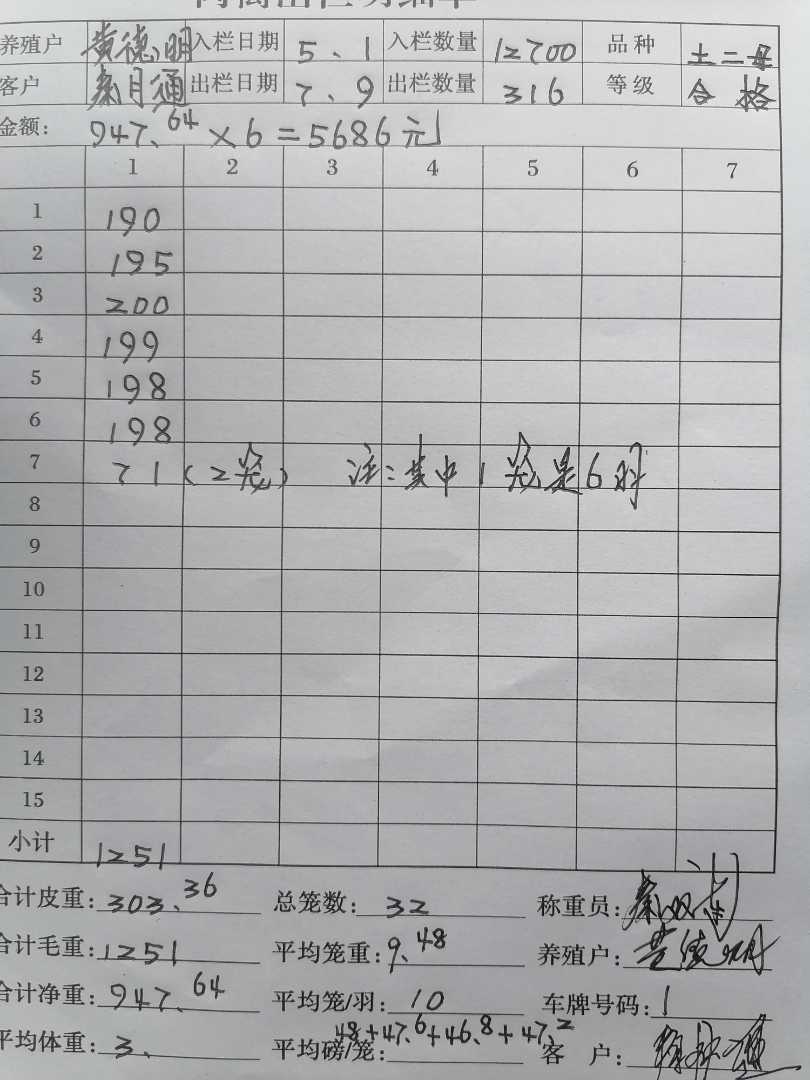 养殖户 黄德明 入栏日期 5、1 入栏数量 12700 品种 土二母
客户 秦月通 出栏日期 7、9 出栏数量 316 等级 合格
金额: 947、64×6=5686元
1 2 3 4 5 6 7
1 190
2 195
3 200
4 199
5 198
6 198
7 71(2笼) 注:其中1笼是6羽
8
9
10
11
12
13
14
15
小计 1251
合计皮重: 303、36 总笼数: 32 称重员:
合计毛重: 1251 平均笼重: 9、48 养殖户: 黄德明
合计净重: 947、64 平均笼/羽: 10 车牌号码: 1
平均体重: 3、 平均磅/笼: 48+47、6+46、8+47、2 客户: